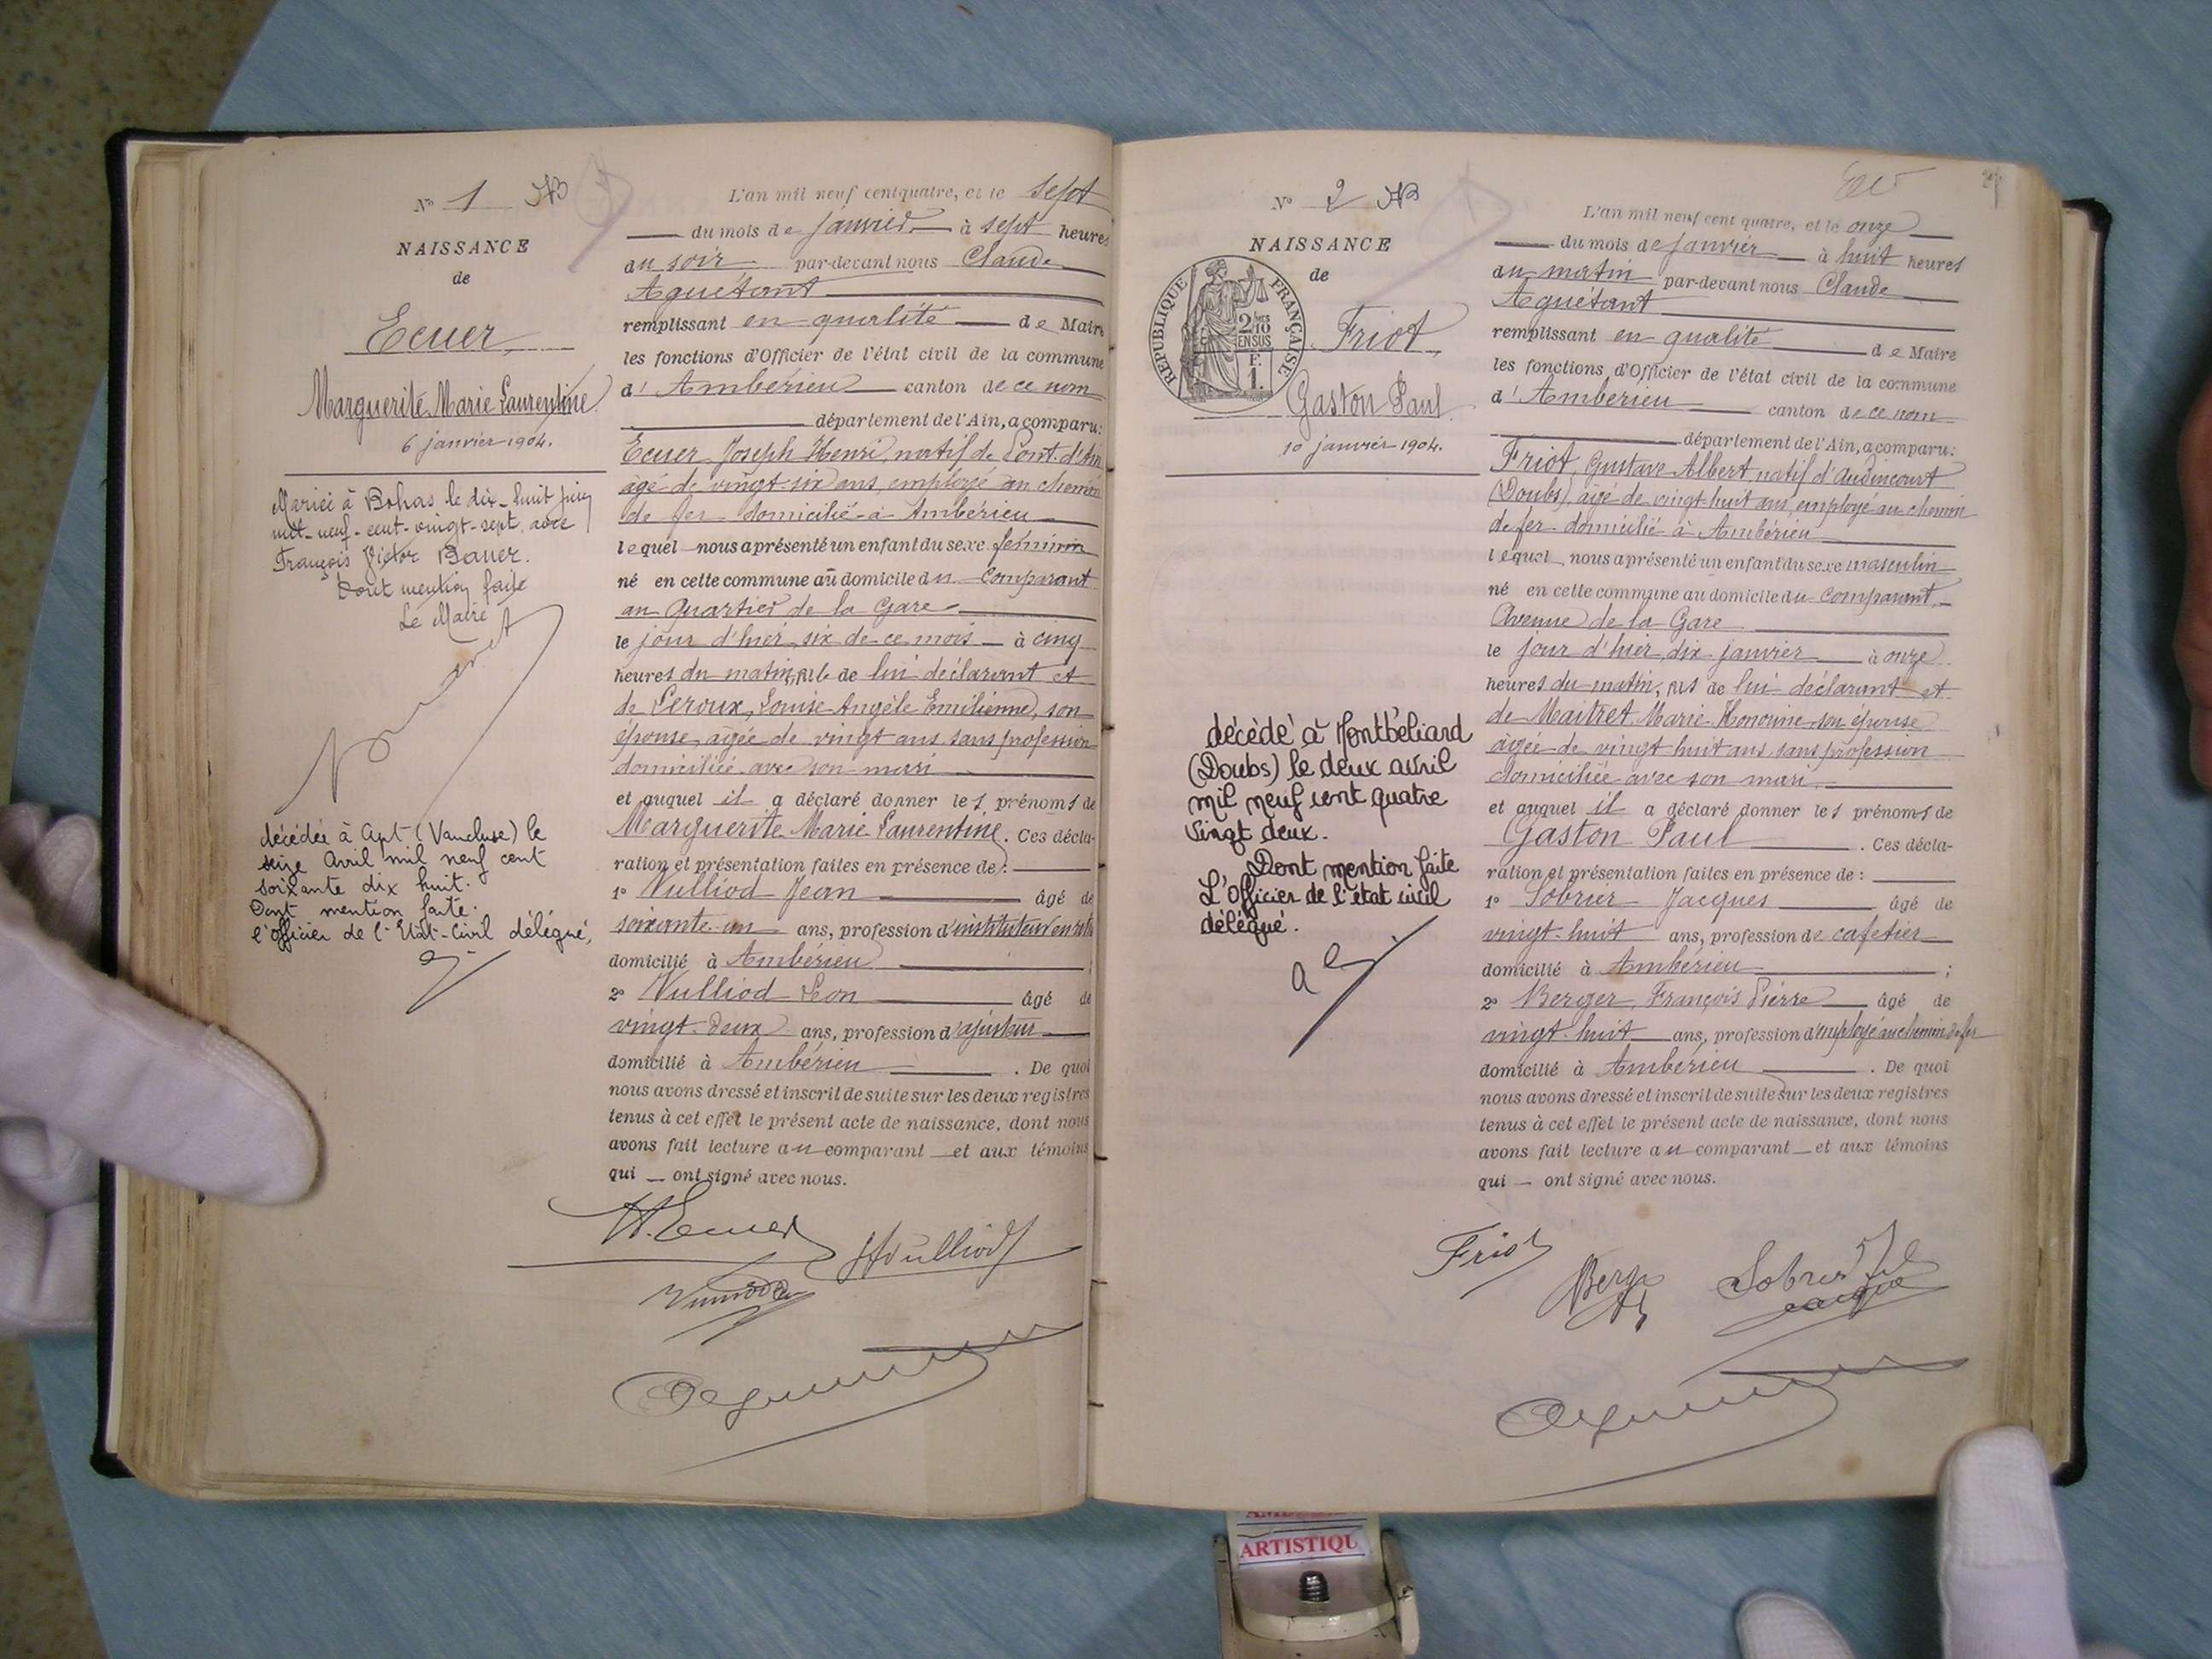 N° 1
NAISSANCE
de
Ecuer
Marguerite Marie Laurentine
6 janvier 1904.
Mariée à Bohas le dix-huit juin
mil-neuf-cent-vingt-sept, avec
François Victor Bauer.
Dont mention faite
Le Maire
décédée à Apt (Vaucluse) le
seize Avril mil neuf cent
soixante dix huit.
Dont mention faite.
l'officier de l'Etat-Civil délégué,
L'an mil neuf cent quatre, et le sept
du mois de janvier à sept heures
du soir par-devant nous Claude
Aguétant
remplissant en qualité de Maire
les fonctions d'Officier de l'état civil de la commune
d'Ambérieu canton de ce nom
département de l'Ain, a comparu:
Ecuer Joseph Henri, natif de Pont-d'Ain
âgé de vingt-six ans, employé au chemin
de fer domicilié à Ambérieu
lequel nous a présenté un enfant du sexe féminin
né en cette commune au domicile du comparant
au Quartier de la Gare
le jour d'hier six de ce mois à cinq
heures du matin, de lui déclarant et
de Leroux, Louise Angèle Emilienne, son
épouse, âgée de vingt ans sans profession
domiciliée avec son mari
et auquel il a déclaré donner les prénoms de
Marguerite Marie Laurentine. Ces décla-
ration et présentation faites en présence de:
1° Vulliod Jean âgé de
soixante-un ans, profession d'instituteur en
domicilié à Ambérieu ;
2° Vulliod Léon âgé de
vingt-deux ans, profession d'ajusteur
domicilié à Ambérieu . De quoi
nous avons dressé et inscrit de suite sur les deux registres
tenus à cet effet le présent acte de naissance, dont nous
avons fait lecture au comparant et aux témoins
qui ont signé avec nous.
H. Ecuer
Vulliod
N° 2
NAISSANCE
de
REPUBLIQUE FRANÇAISE
2/10 EN SUS
F. 1.
Friot
Gaston Paul
10 janvier 1904.
décédé à Montbéliard
(Doubs) le deux avril
mil neuf cent quatre
vingt deux.
Dont mention faite
L'Officier de l'état civil
délégué.
L'an mil neuf cent quatre, et le onze
du mois de janvier à huit heures
du matin par-devant nous Claude
Aguétant
remplissant en qualité de Maire
les fonctions d'Officier de l'état civil de la commune
d'Ambérieu canton de ce nom
département de l'Ain, a comparu:
Friot, Gustave Albert, natif d'Audincourt
(Doubs), âgé de vingt-huit ans, employé au chemin
de fer domicilié à Ambérieu
lequel nous a présenté un enfant du sexe masculin
né en cette commune au domicile du comparant,
Avenue de la Gare
le jour d'hier, dix janvier à onze
heures du matin, fils de lui déclarant et
de Maitret Marie Honorine son épouse
âgée de vingt huit ans, sans profession
domiciliée avec son mari
et auquel il a déclaré donner les prénoms de
Gaston Paul . Ces décla-
ration et présentation faites en présence de :
1° Sobrier Jacques âgé de
vingt-huit ans, profession de cafetier
domicilié à Ambérieu ;
2° Berger, François Pierre âgé de
vingt-huit ans, profession d'employé au chemin de fer
domicilié à Ambérieu . De quoi
nous avons dressé et inscrit de suite sur les deux registres
tenus à cet effet le présent acte de naissance, dont nous
avons fait lecture au comparant et aux témoins
qui ont signé avec nous.
Friot
ARTISTIQU